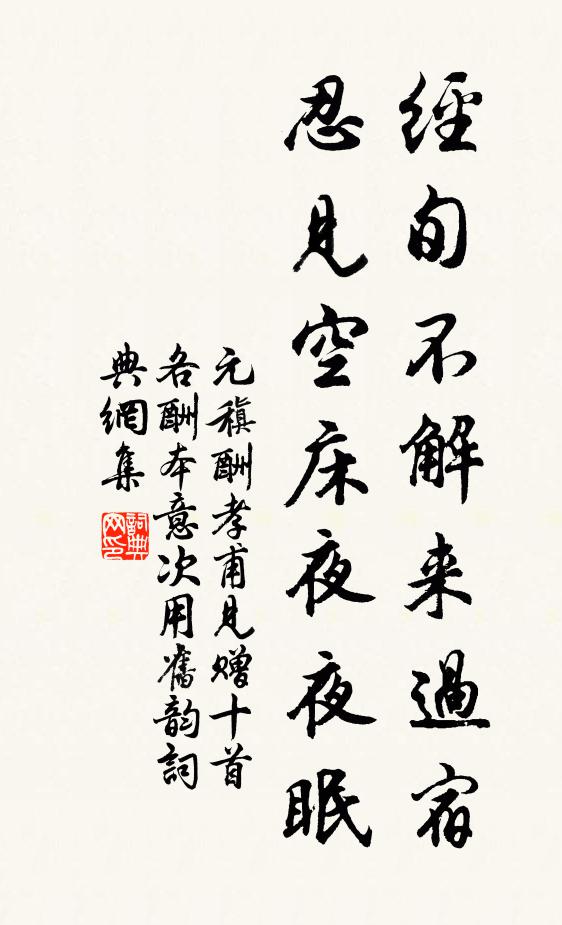 經旬不解来過宿
忍見空床夜夜眠
元稹酬孝甫見贈十首
各酬本意次用舊韵詞
典網集
詞典
网印